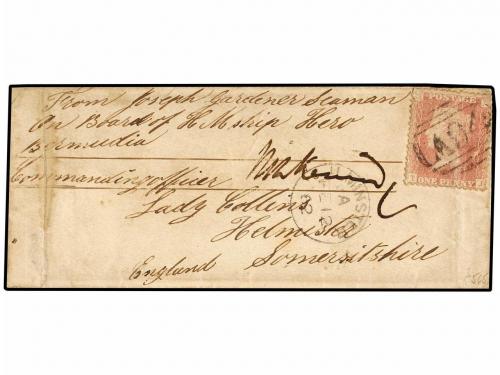 From Joseph Gardener Seaman
On Board of H.M. ship Hero
Bermudia
Commanding officer
Lady Collins
Helminster
Somersitshire
England
POSTAGE
ONE PENNY